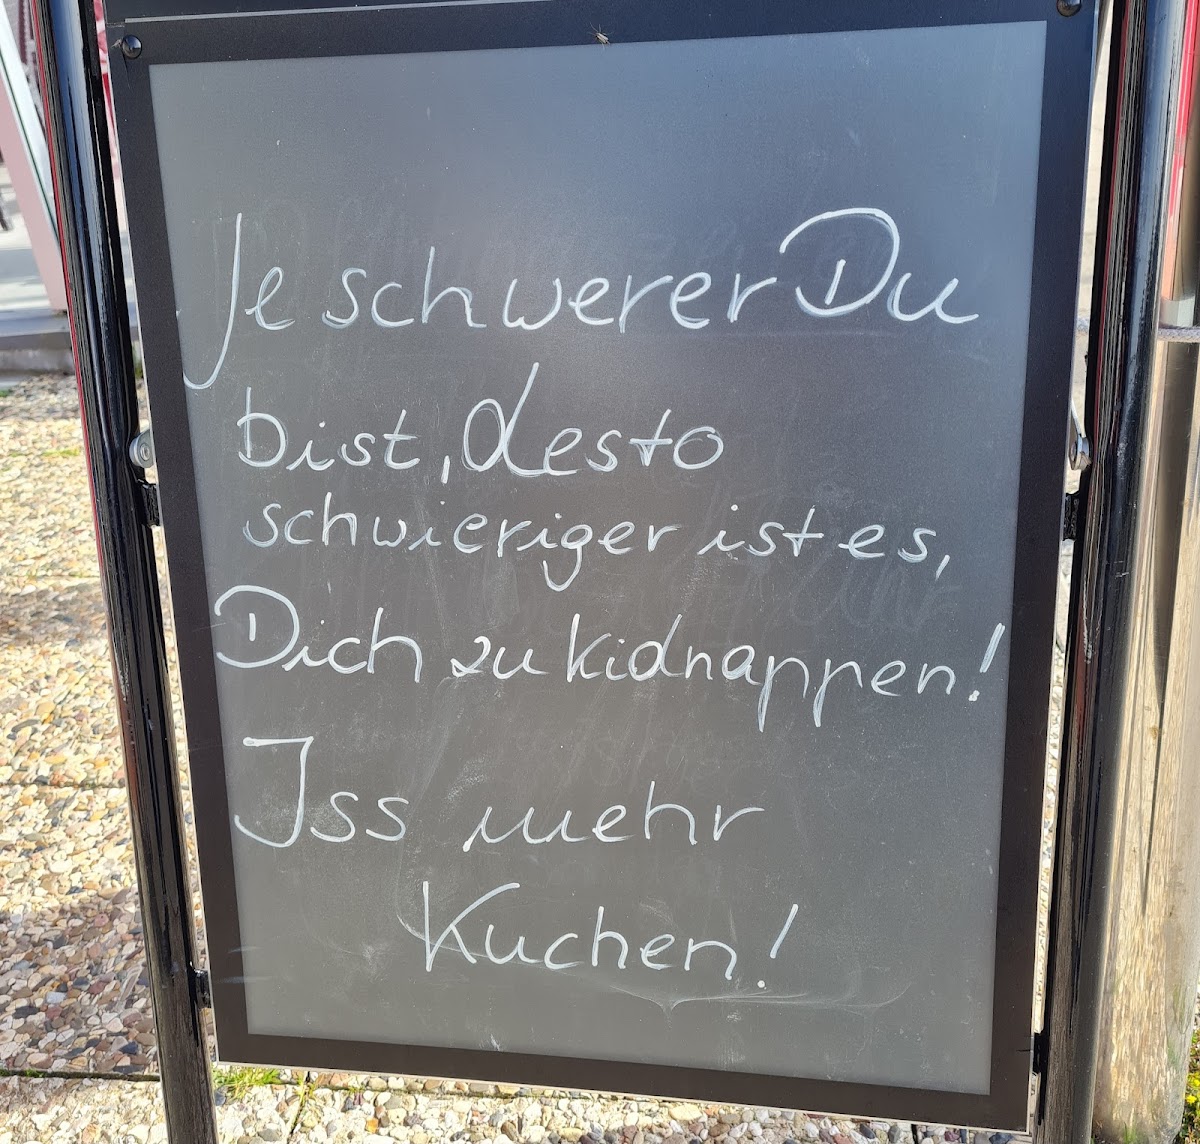 Je schwerer Du
bist, desto
schwieriger ist es,
Dich zu kidnappen!
Iss mehr
Kuchen!